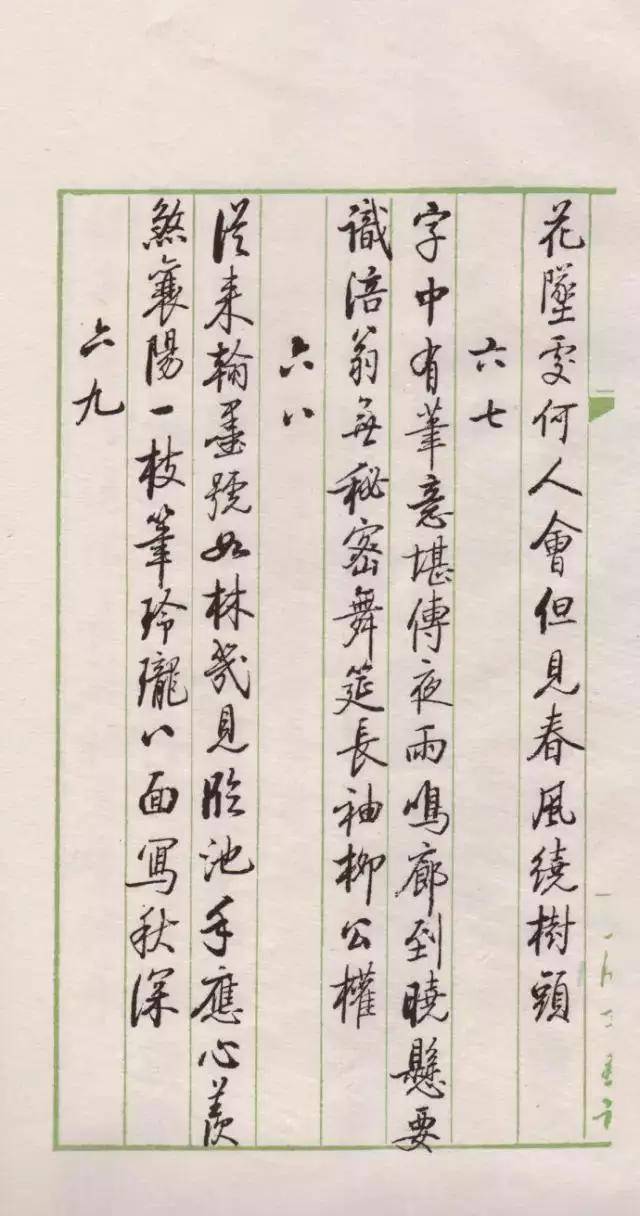 花墜處何人會但見春風繞樹頭
六七
字中有筆意堪傳夜雨鳴廊到曉懸要
識涪翁無秘密舞筵長袖柳公權
六八
從来翰墨號如林幾見臨池手應心羨
煞襄陽一枝筆玲瓏八面寫秋深
六九